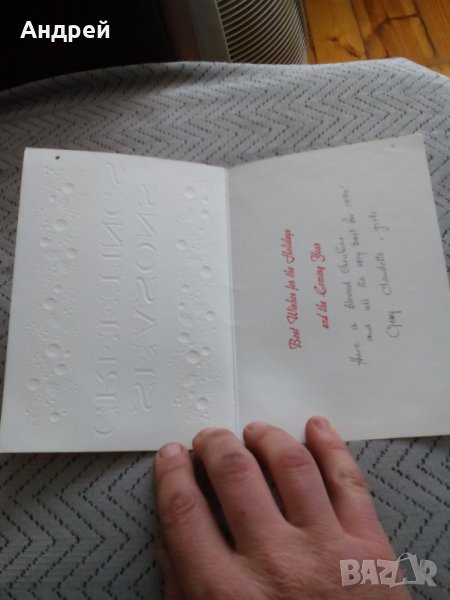 Андрей
SEASONS
GREETINGS
Best Wishes for the Holidays
and the Coming Year
Have a Blessed Christmas
and all the very best for 1996
Gary, Claudette + girls
BAZAR